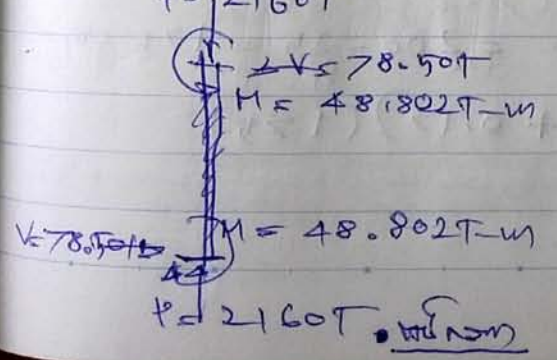 P= 2160T
V= 78.50T
M = 48.802T-m
M = 48.802T-m
V= 78.50T
P= 2160T